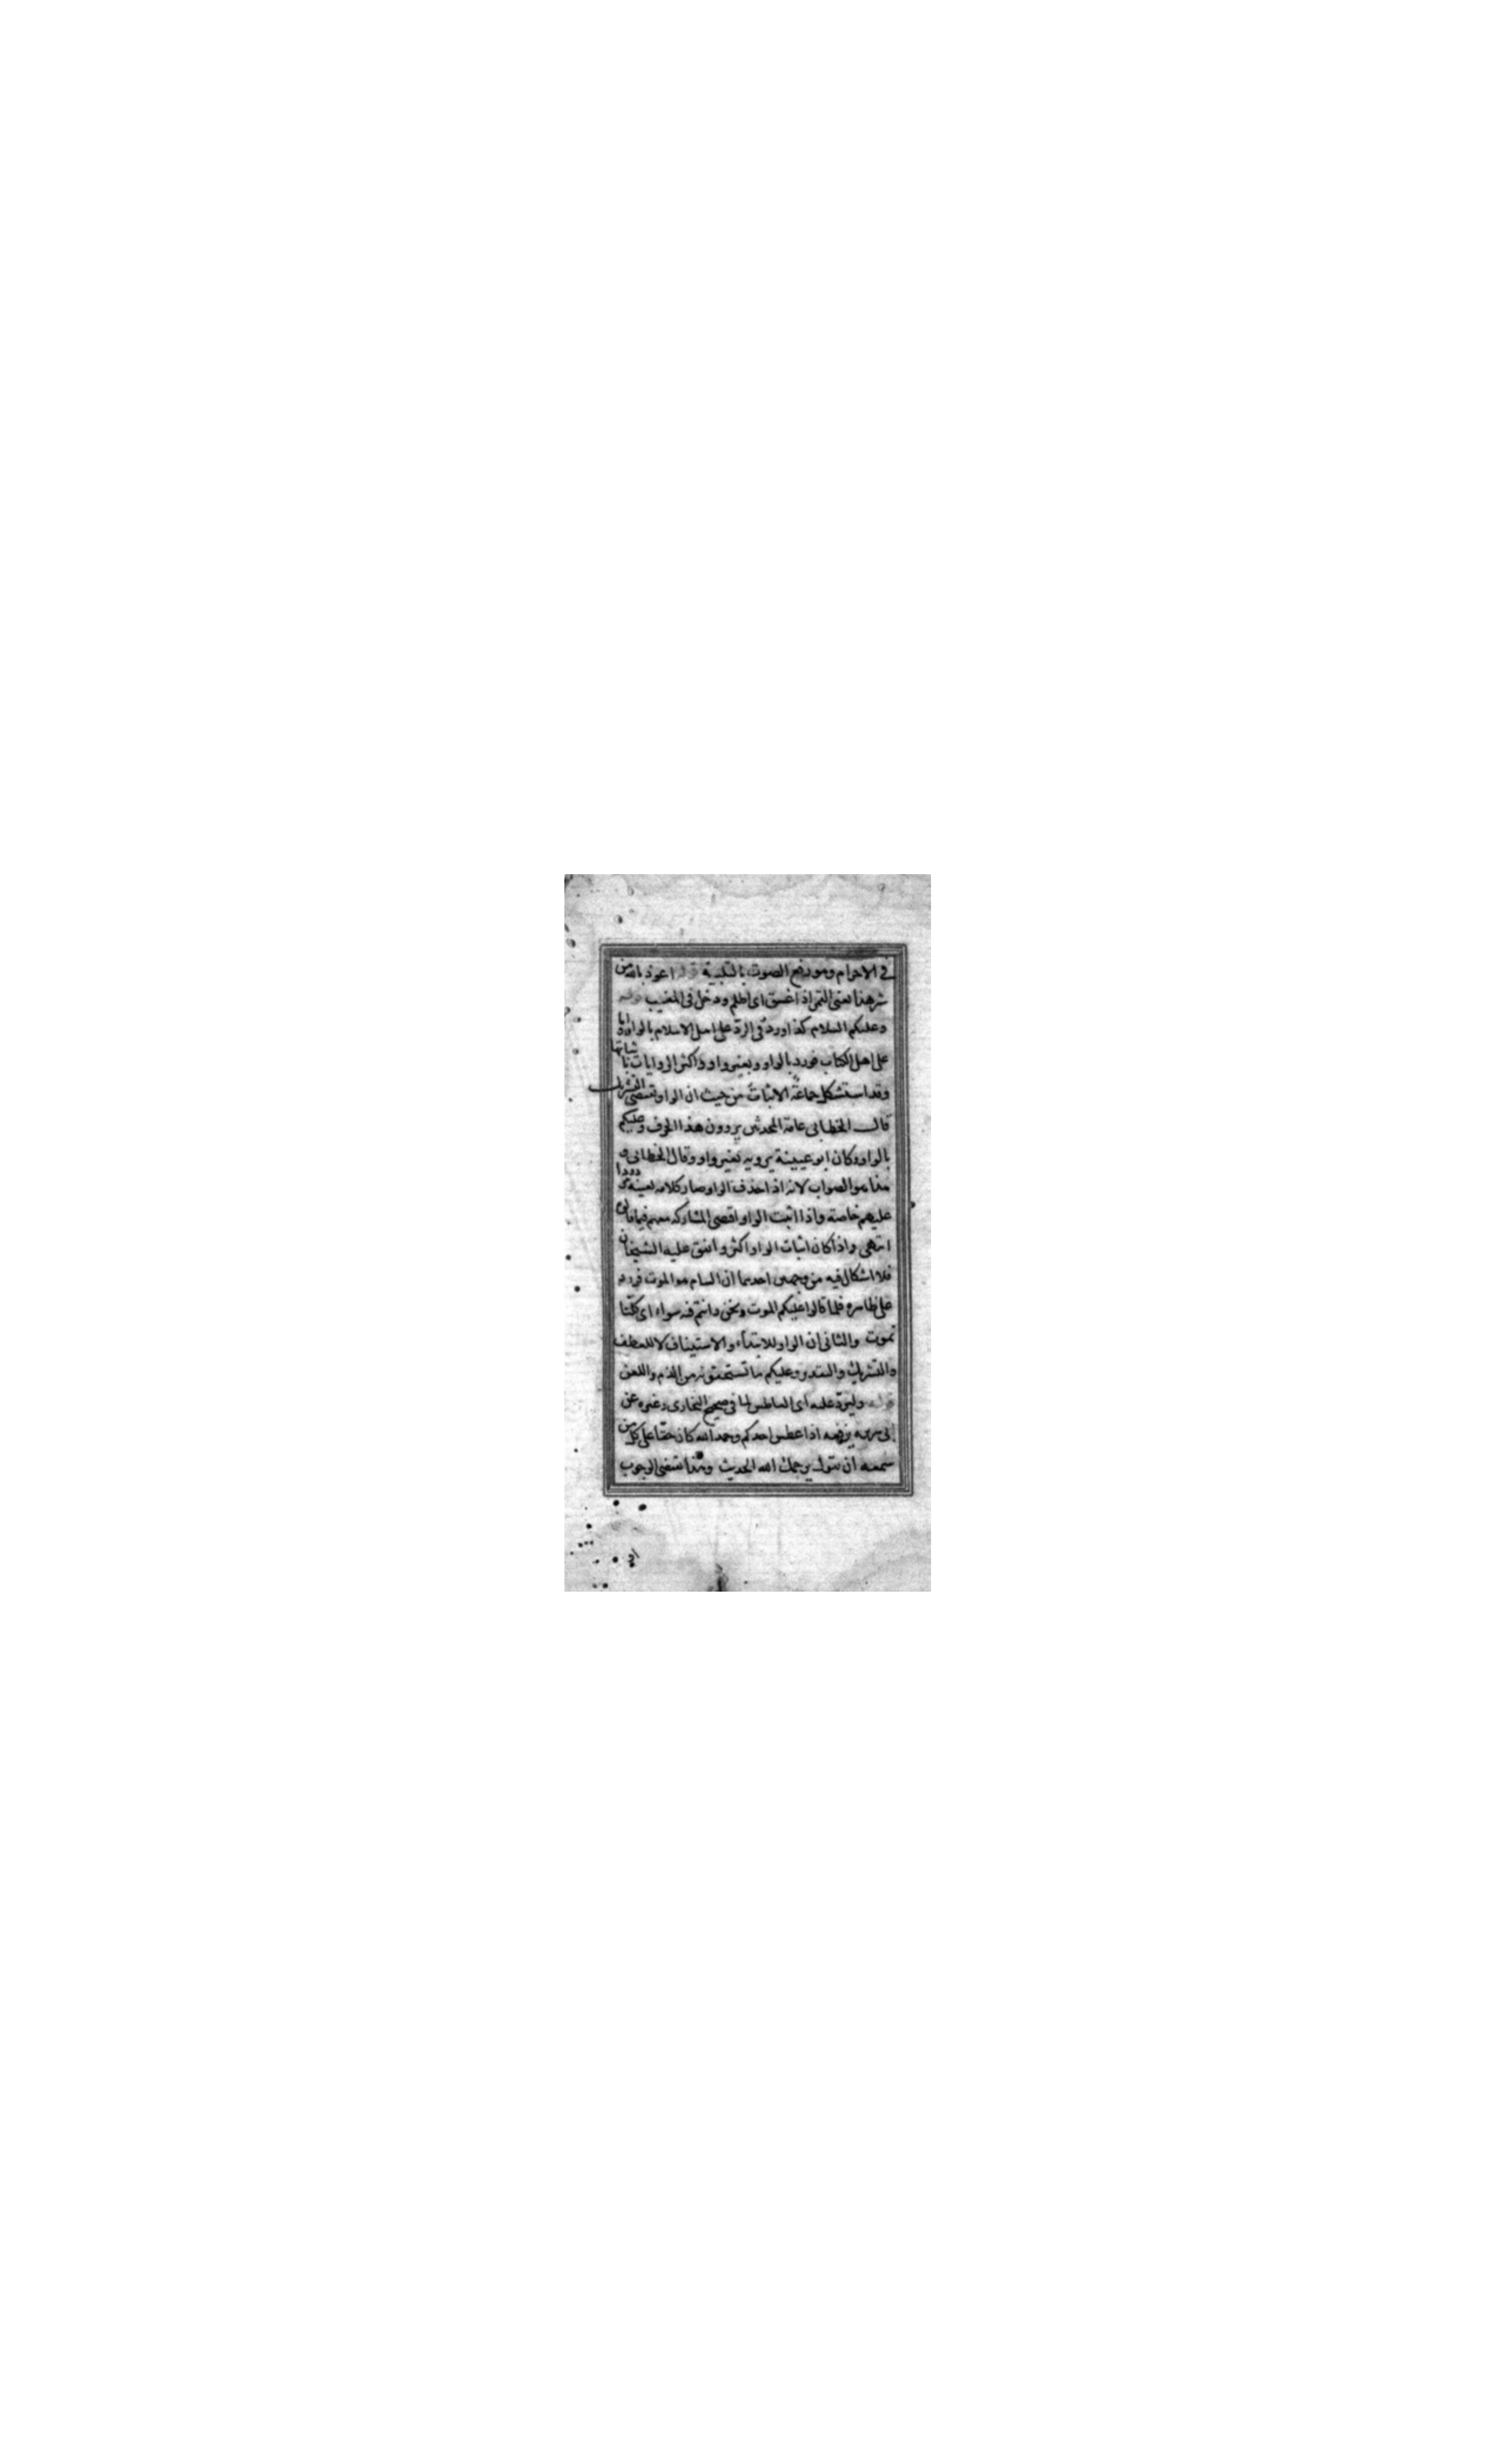 في الاحرام وهو رفع الصوت بالتلبية قوله اعوذ بالله من
شر هذا يعني القمر اذا غسق اى اظلم ودخل فى المغيب قوله
وعليكم السلام كذا ورد في الرد على اهل الاسلام بالواو واما
على اهل الكتاب فورد بالواو وبغير واو واكثر الروايات باثباتها
وقد استشكل جماعة الاثبات من حيث ان الواو تقتضى التشريك
قال الخطابى عامة المحدثين يروون هذا الحرف وعليكم
بالواو وكان ابو عيينة يرويه بغير واو وقال الخطابى و
هذا هو الصواب لانه اذا حذف الواو صار كلامه بعينه مردودا
عليهم خاصة واذا اثبت الواو اقتضى المشاركة معهم فيما قالوه
انتهى واذا كان اثبات الواو اكثر واتفق عليه الشيخان
فلا اشكال فيه من وجهين احدهما ان السام هو الموت فورد
على ظاهره فلما قالوا عليكم الموت ونحن وانتم فيه سواء اى كلنا
نموت والثانى ان الواو للابتداء والاستيناف لا للعطف
والتشريك والتقدير وعليكم ما تستحقونه من الذم واللعن
قوله وليرد عليه اى العاطس لما فى صحيح البخارى وغيره عن
ابى هريرة يرفعه اذا عطس احدكم وحمد الله كان حقا على كل من
سمعه ان يقول يرحمك الله الحديث وهذا يقتضى الوجوب